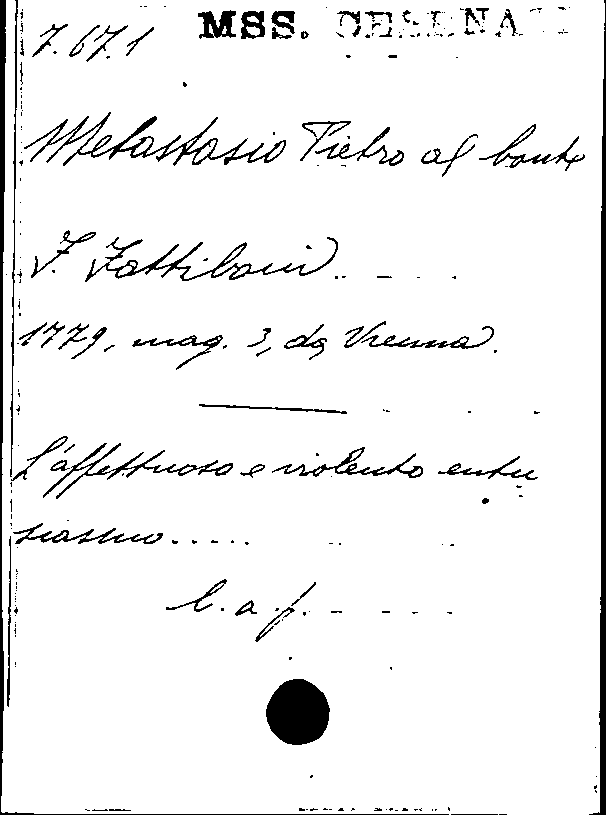 7.67.1 MSS. CESENATI
Metastasio Pietro al Conte
F. Fattiboni
1779, mag. 3, da Vienna.
L'affettuoso e violento entu
siasmo.....
C. a f.